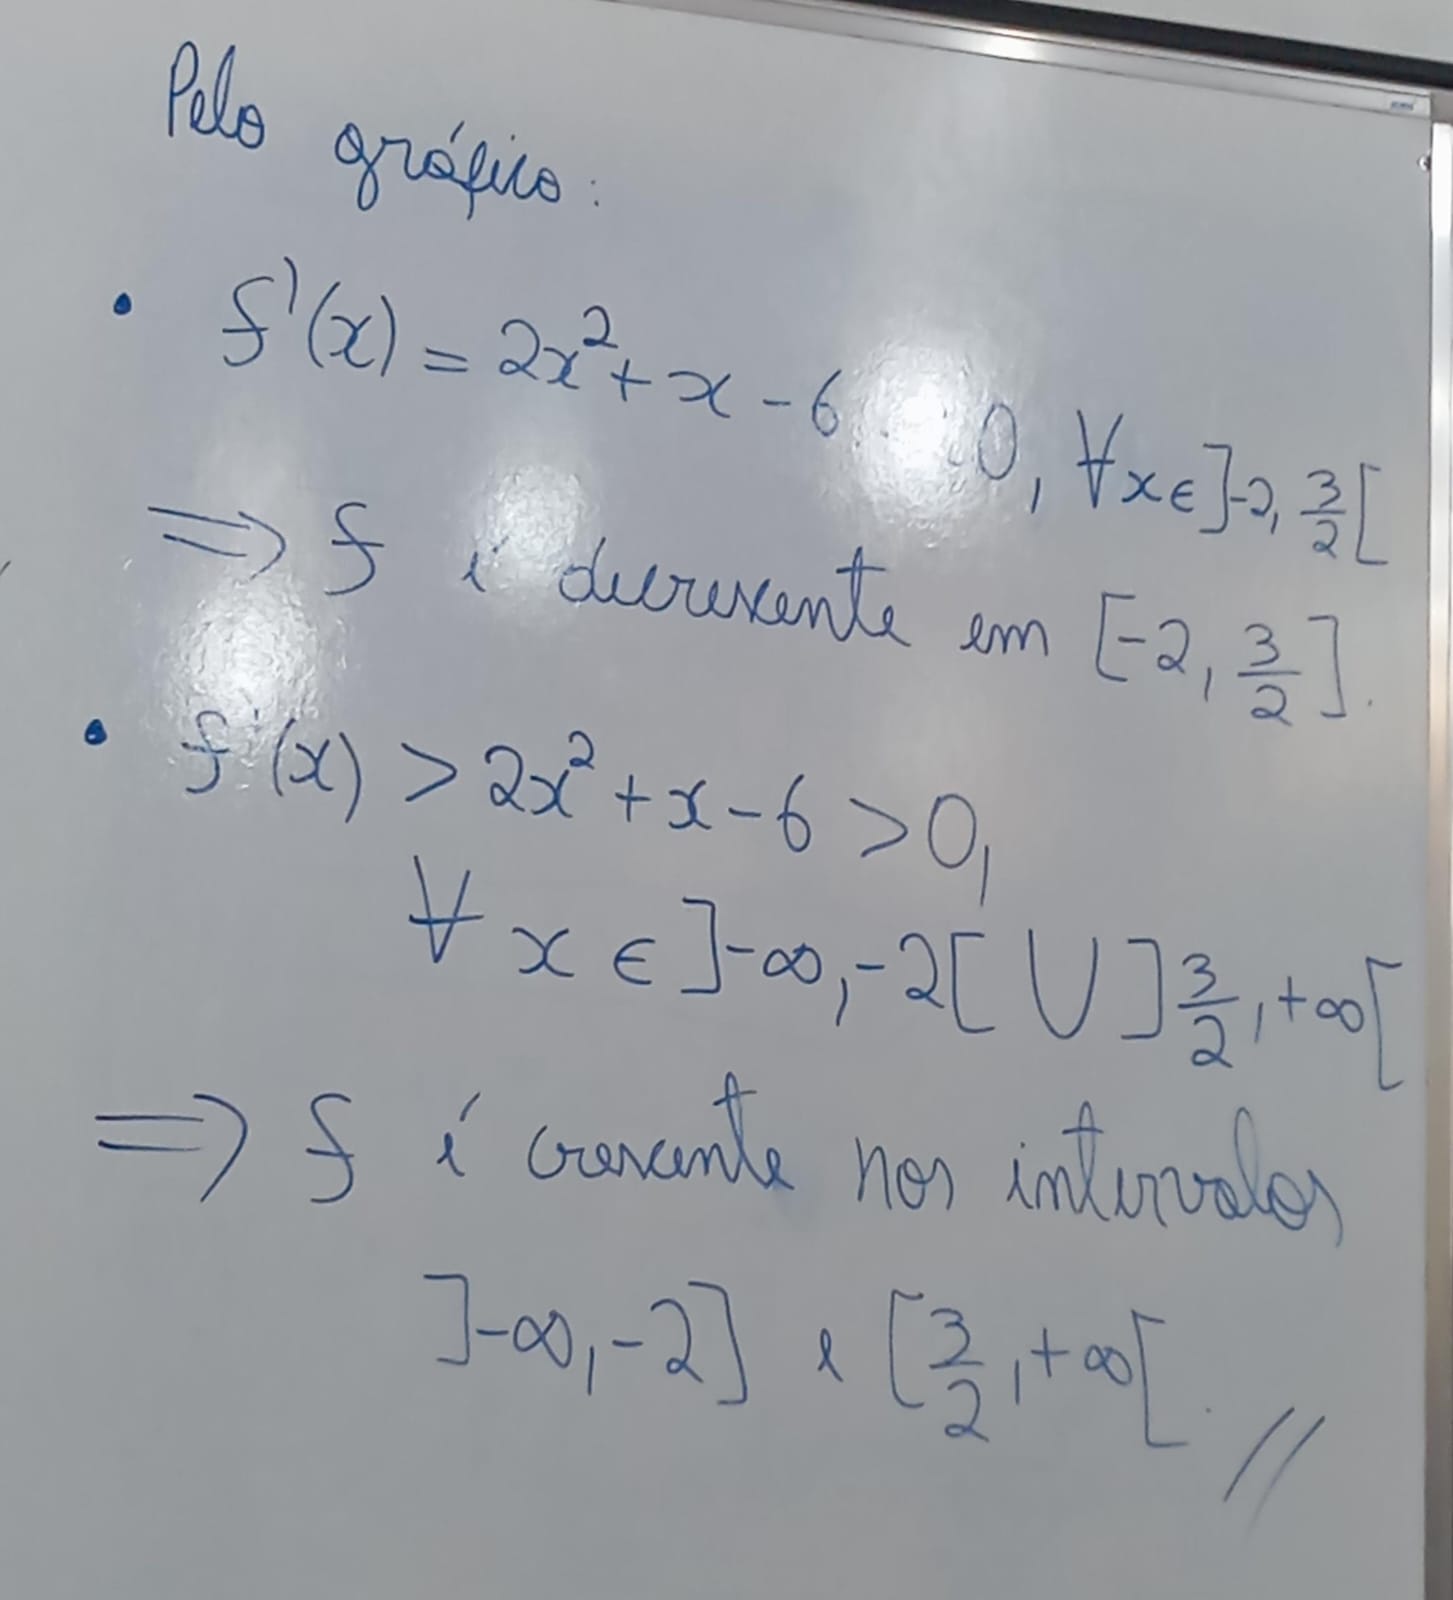 Pelo gráfico:
• f'(x) = 2x² + x - 6 0, ∀x ∈ ]-2, 3/2[
⇒ f é decrescente em [-2, 3/2].
• f'(x) > 2x² + x - 6 > 0,
∀ x ∈ ]-∞, -2[ ∪ ]3/2, +∞[
⇒ f é crescente nos intervalos
]-∞, -2] e [3/2, +∞[. //